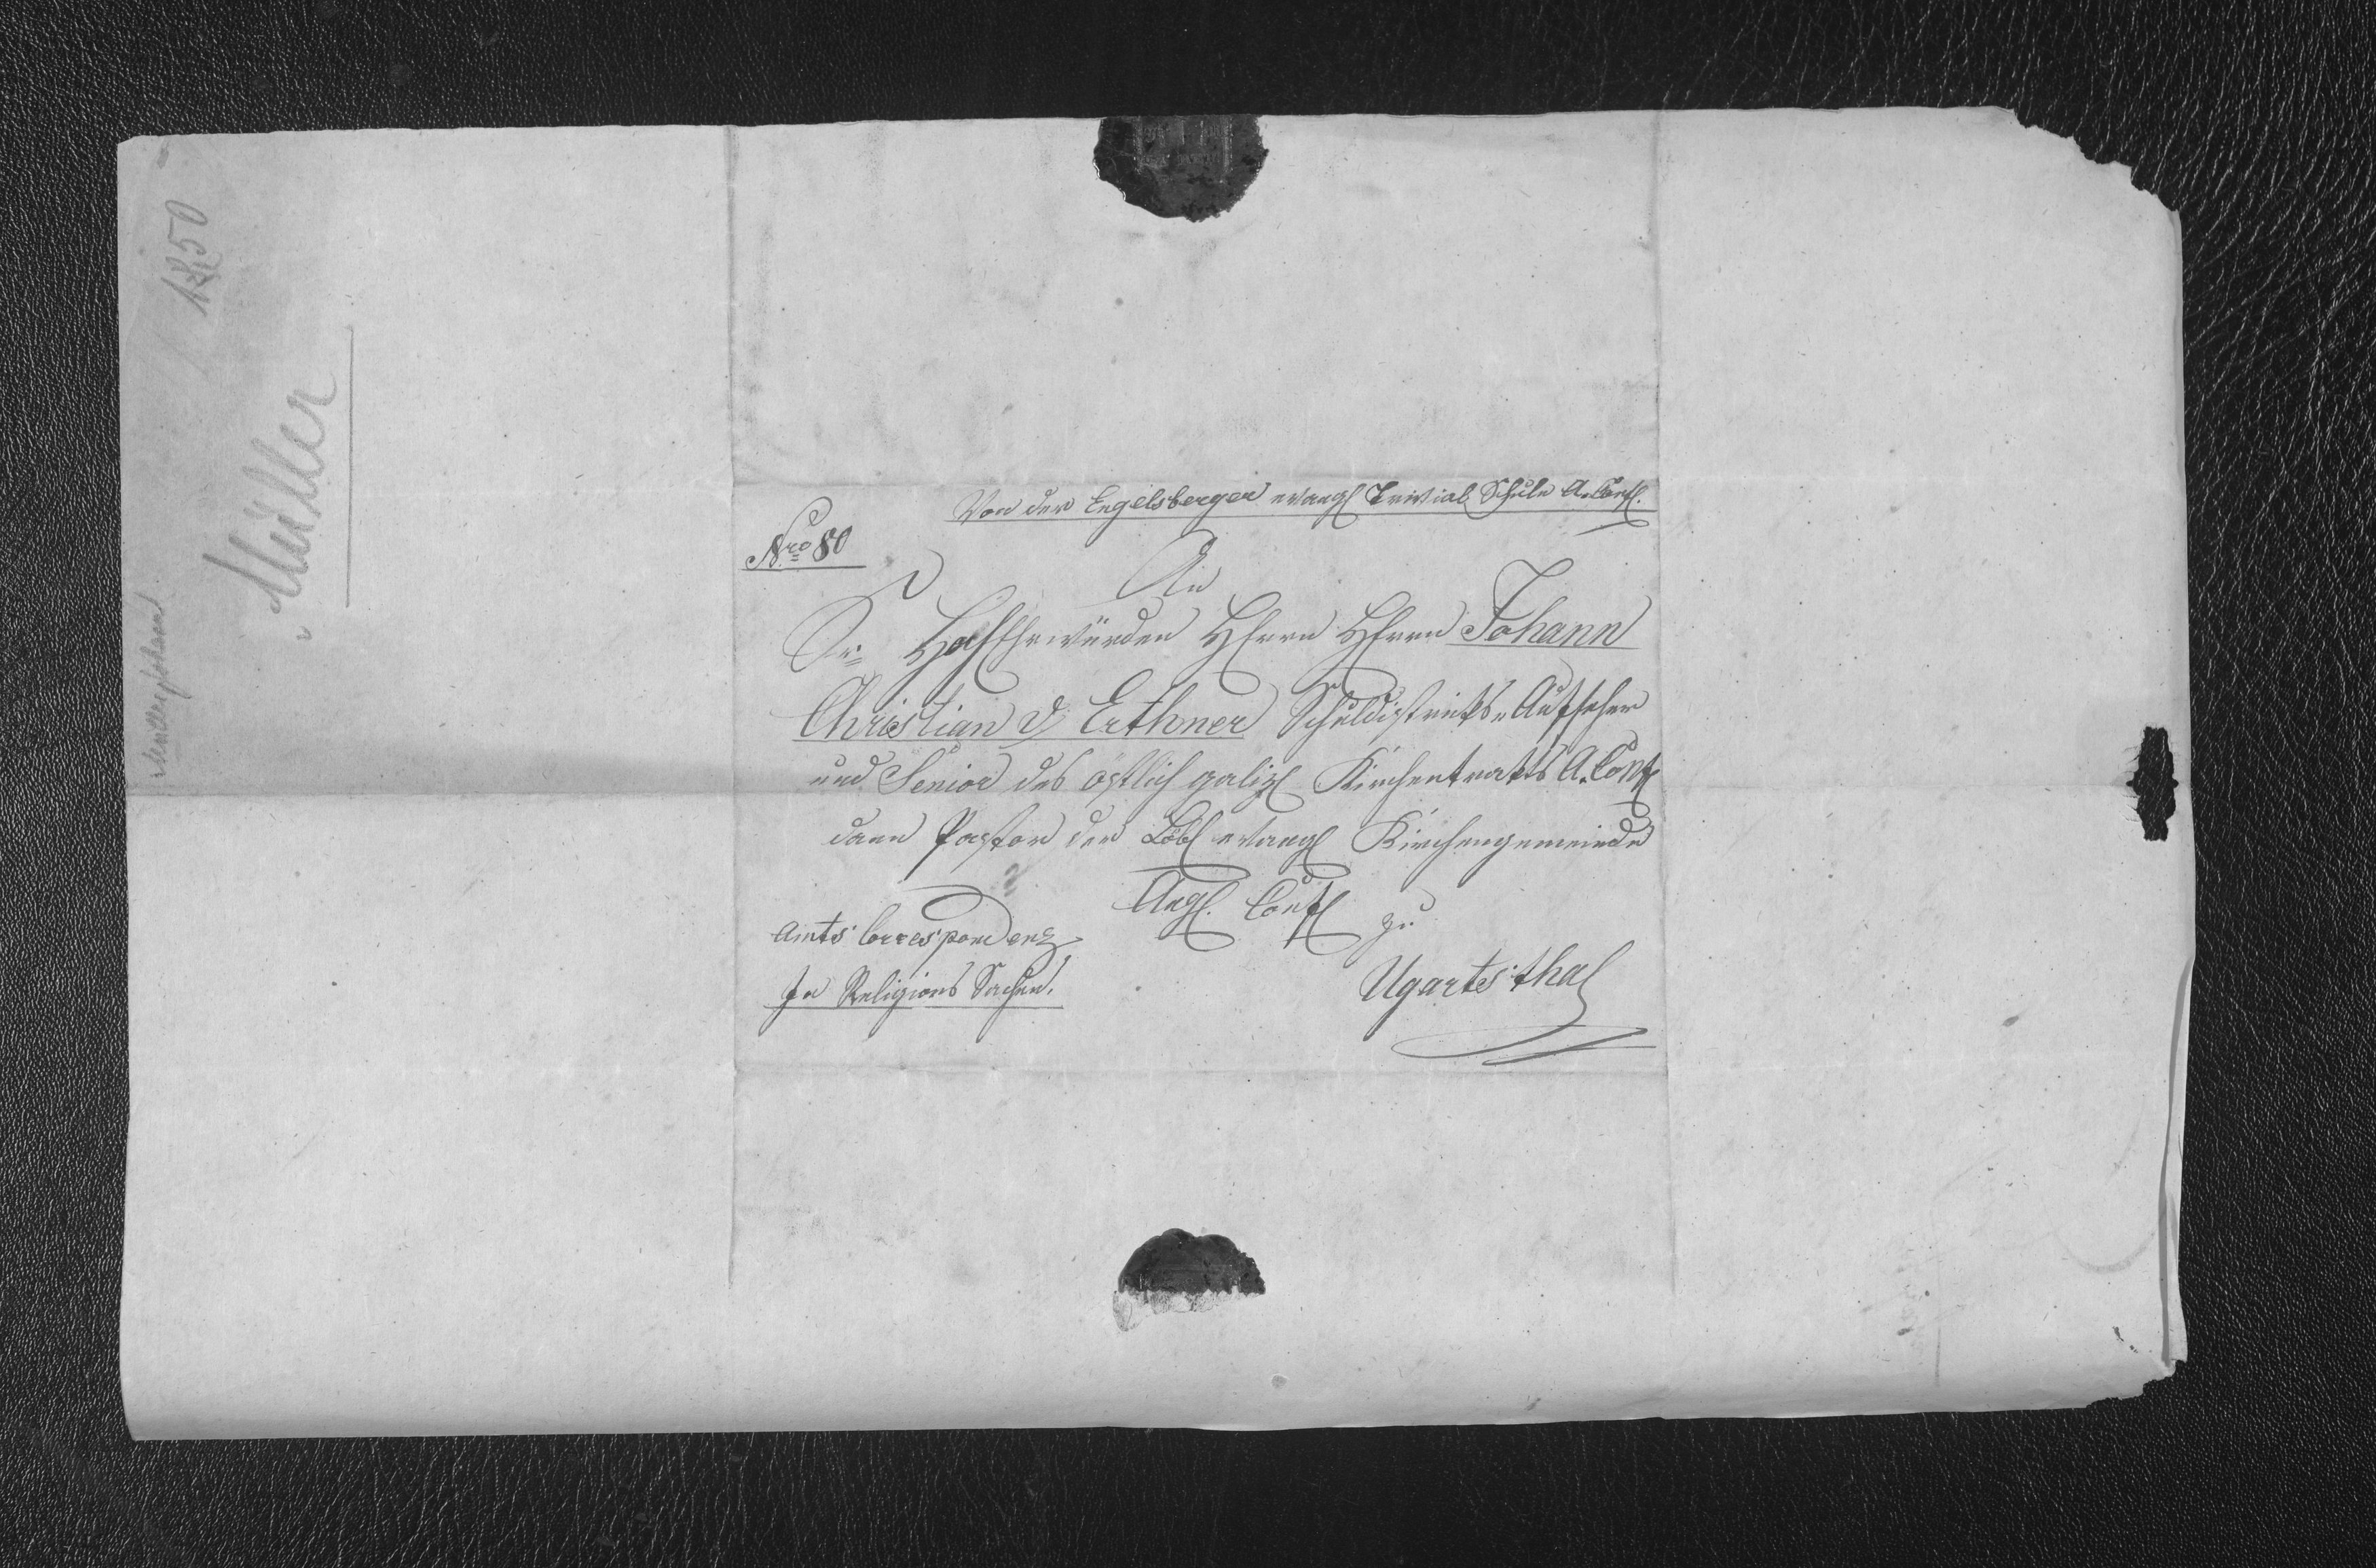 1850
Müller
Von der Engelsberger evangl Trivial Schule A. Confl.
Nro 80
An
Sr= HochEhrwürden HHerrn HHerrn Johann
Christian v Erthner Schuldistrikts=Aufseher
und Senior des östlich galizl Kirchentrakts A. Confl
dann Pastor der Löbl evangl Kirchengemeinde
Augl. Confl zu
Amts Correspondenz
In Religions Sachen.
Ugartsthal